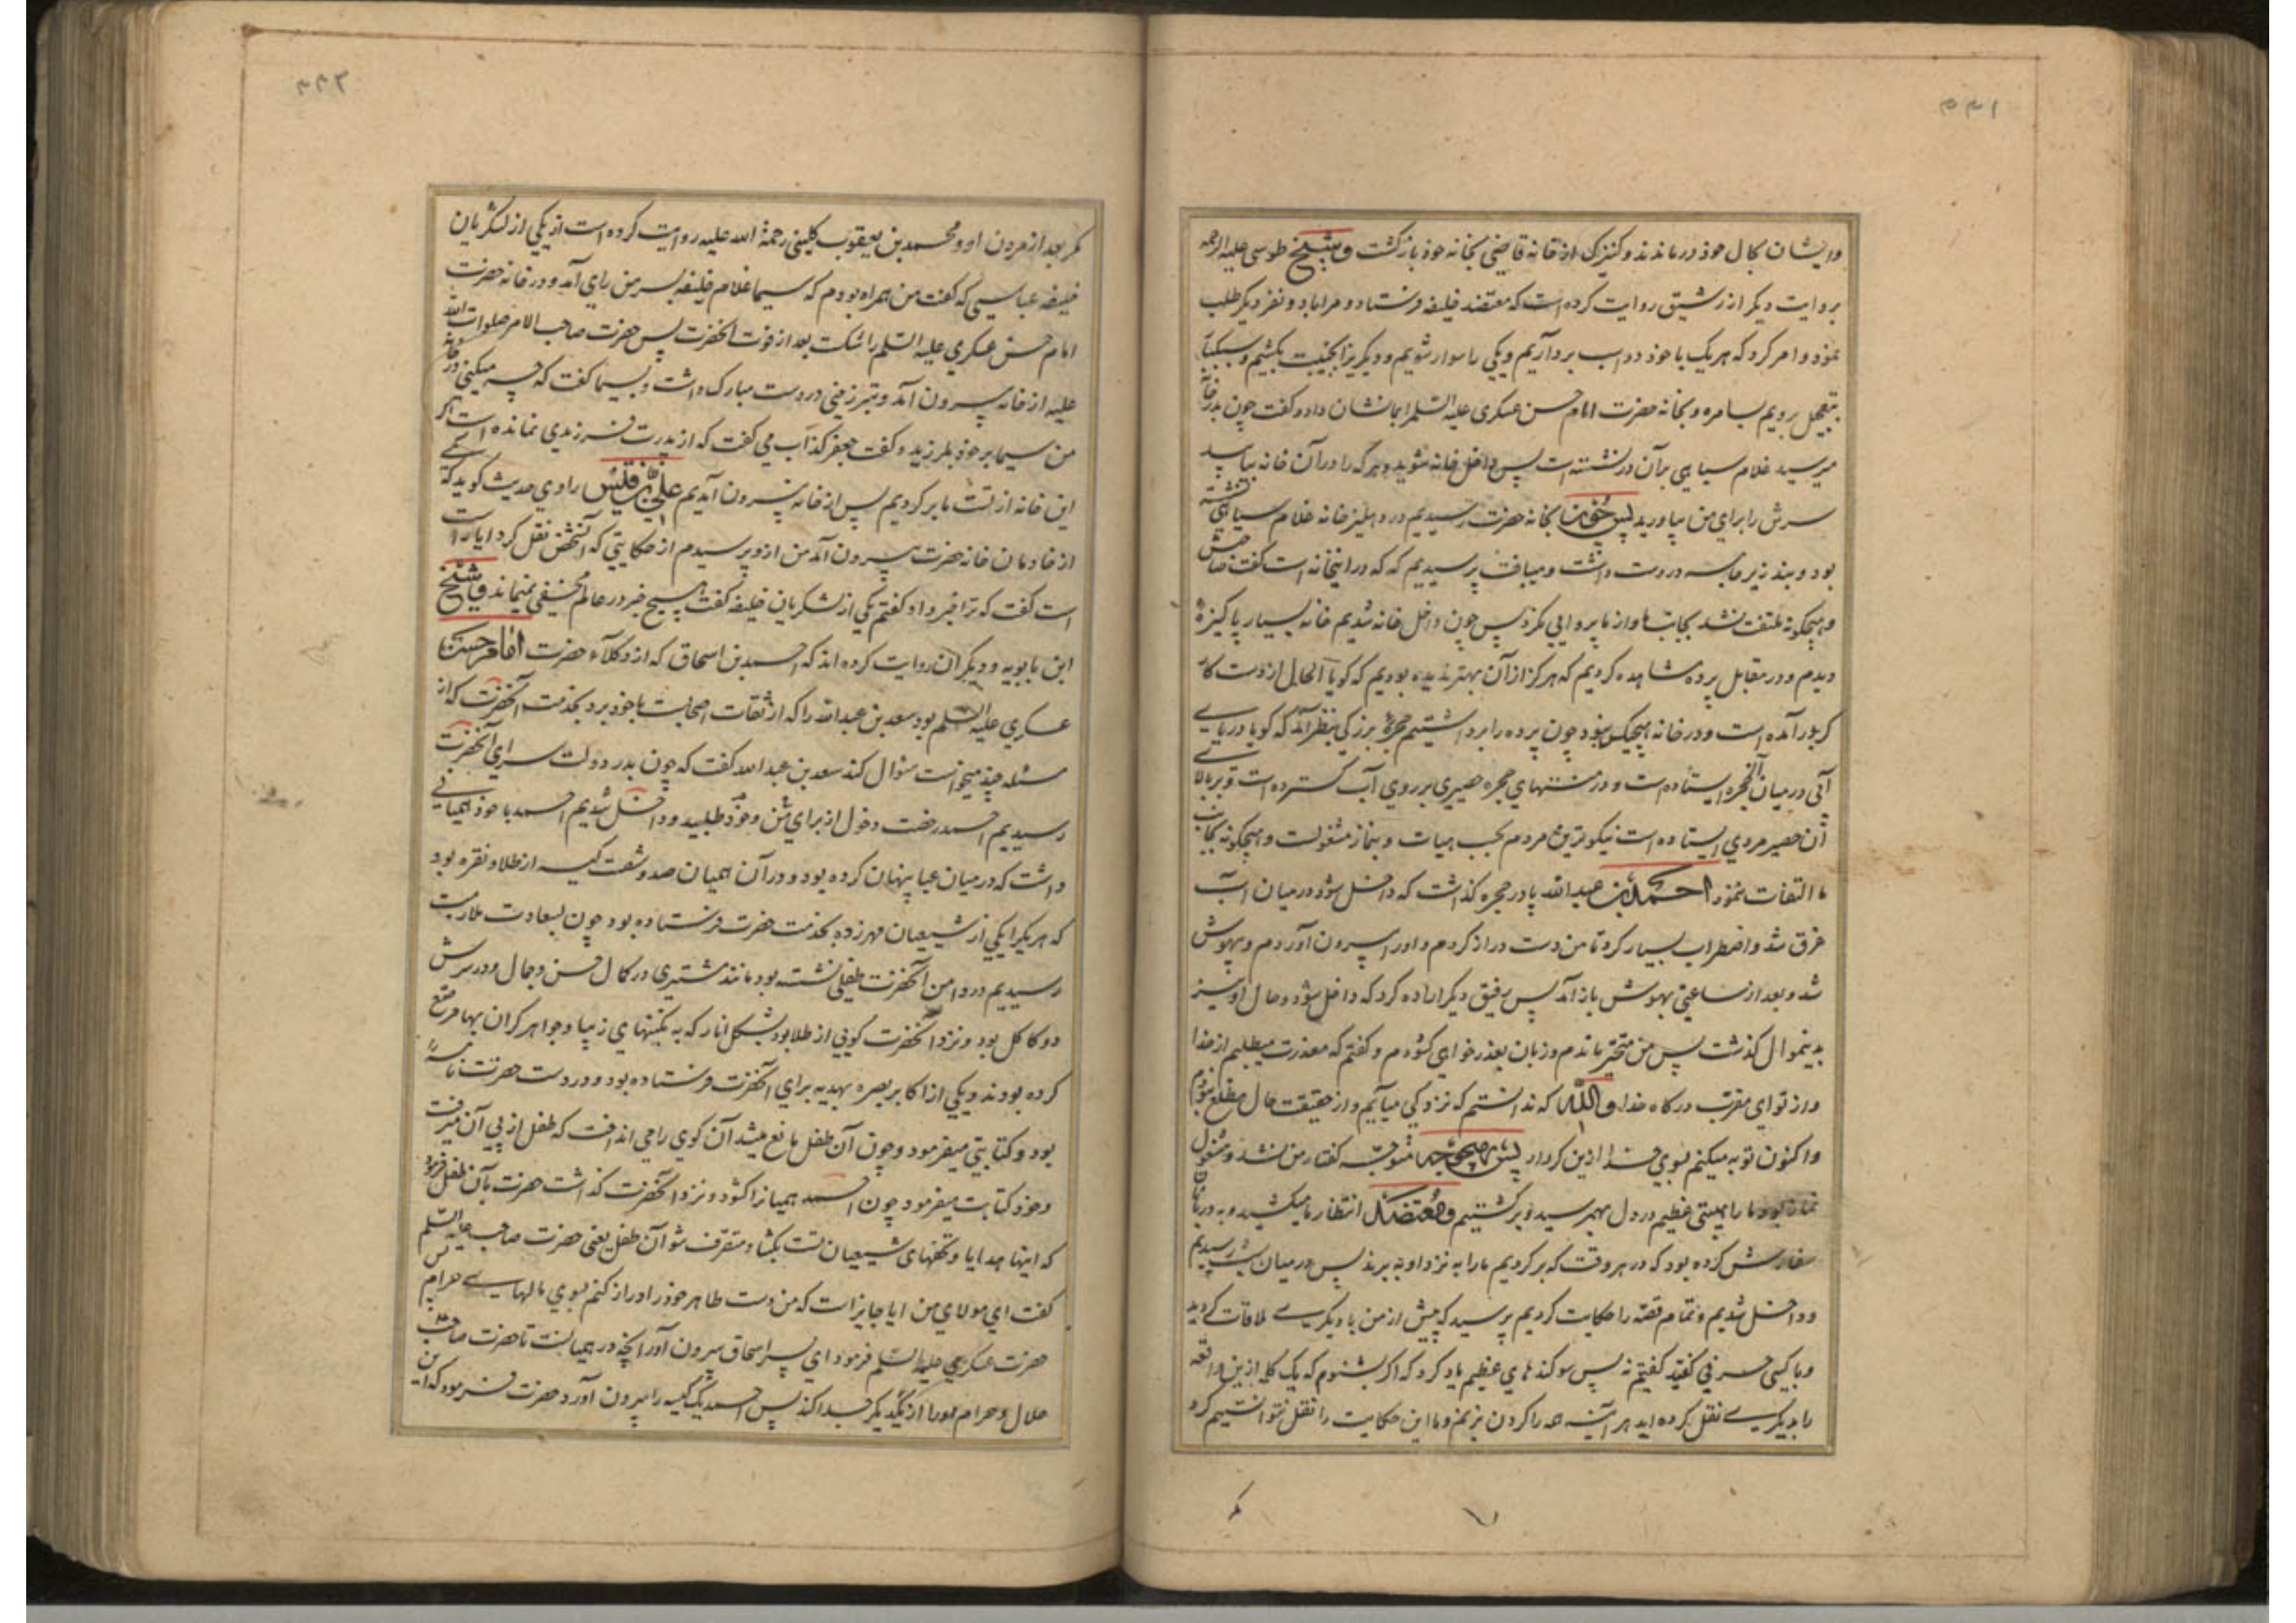 ۵۴۱
وایشان بحال خود درماندند و کنیزک از خانه قاضی بخانه خود بازگشت و شیخ طوسی علیه الرحمه
بروایت دیگر از رشیق روایت کرده است که معتضد خلیفه فرستاد و مرا با دو نفر دیگر طلب
نمود و امر کرد که هریک با خود دو اسب برداریم و یکی را سوار شویم و دیگریرا بجنیبت بکشیم و سبکبار
بتعجیل برویم بسامره و بخانه حضرت امام حسن عسکری علیه السلم را بمانشان داد و گفت چون بدر خانه
میرسید غلام سیاهی بر آن در نشسته است پس داخل خانه شوید و هرکه را در آن خانه بیابید
سرش را برای من بیاورید پس چون بخانه حضرت رسیدیم در دهلیز خانه غلام سیاهی نشسته
بود و بند زیر جامه در دست داشت و میبافت پرسیدیم که که در اینخانه است گفت صاحبش
و هیچگونه ملتفت نشد بجانب ما و از ما پروایی نکرد پس چون داخل خانه شدیم خانه بسیار پاکیزه
دیدیم و در مقابل پرده مشاهده کردیم که هرگز از آن بهتر ندیده بودیم که گویا الحال از دست کار
گر بدر آمده است و در خانه هیچکس نبود چون پرده را برداشتیم حجرهٔ بزرگی بنظر آمد که گویا دریای
آبی در میان آنحجره ایستاده است و در منتهای حجره حصیری بر روی آب گسترده است و بر بالای
آن حصیر مردی ایستاده است نیکوترین مردم بحسب هیات و بنماز مشغولست و هیچگونه بجانب
ما التفات ننمود احمد بن عبدالله پا در حجره گذاشت که داخل شود در میان آب
غرق شد و اضطراب بسیار کرد تا من دست دراز کردم و او را بیرون آوردم و بیهوش
شد و بعد از ساعتی بهوش باز آمد پس رفیق دیگر اراده کرد که داخل شود و حال او نیز
بدینموال گذشت پس من متحیر ماندم و زبان بعذر خواهی گشودم و گفتم که معذرت میطلبم از خدا
و از تو ای مقرب درگاه خدا والله که ندانستم که نزد کی میآیم و از حقیقت حال مطلع نبودم
و اکنون توبه میکنم بسوی خدا ازین کردار پس بهیچوجه متوجه گفتار من نشد و مشغول
نماز بود ما را هیبتی عظیم در دل بهم رسید و برگشتیم و معتضد انتظار ما میکشید و به دربانان
سفارش کرده بود که در هر وقت که برگردیم ما را به نزد او به برند پس در میان شب رسیدیم
و داخل شدیم و تمام قصه را حکایت کردیم پرسید که پیش از من با دیگری ملاقات کردید
و با کسی حرفی گفتید گفتیم نه پس سوگندهای عظیم یاد کرد که اگر بشنوم که یک کلمه ازین واقعه
را بدیگری نقل کرده اید هر آینه همه را گردن بزنم و ما این حکایت را نقل نتوانستیم کرد
۵۴۲
مگر بعد از مردن او و محمد بن یعقوب کلینی رحمة الله علیه روایت کرده است از یکی از لشکریان
خلیفه عباسی که گفت من همراه بودم که سیما غلام خلیفه بسر من رای آمد و در خانه حضرت
امام حسن عسکری علیه السلم را شکست بعد از فوت آنحضرت پس حضرت صاحب الامر صلوات الله
علیه از خانه بیرون آمد و تبرزینی در دست مبارک داشت و بسیما گفت که چه میکنی در خانه
من سیما بر خود بلرزید و گفت جعفر کذاب می گفت که از پدرت فرزندی نمانده است اگر
این خانه از تست ما بر گردیم پس از خانه بیرون آمدیم علی بن قلیس راوی حدیث گوید که یکی
از خادمان خانه حضرت بیرون آمد من ازو پرسیدم از حکایتی که آنشخص نقل کرد ایا راست
است گفت که ترا خبر داد گفتم یکی از لشکریان خلیفه گفت هیچ خبر در عالم مخفی نمیماند و شیخ
ابن بابویه و دیگران روایت کرده اند که احمد بن اسحاق که از وکلاء حضرت امام حسن
عسکری علیه السلم بود سعد بن عبدالله را که از ثقات اصحابست با خود برد بخدمت آنحضرت که از
مسئله چند میخواست سؤال کند سعد بن عبدالله گفت که چون بدر دولت سرای آنحضرت
رسیدیم احمد رخصت دخول از برای من و خود طلبید و داخل شدیم احمد با خود همیانی
داشت که در میان عبا پنهان کرده بود و در آن همیان صد و شصت کیسه از طلا و نقره بود
که هر یکرا یکی از شیعیان مهر زده بخدمت حضرت فرستاده بود چون بسعادت ملازمت
رسیدیم در دامن آنحضرت طفلی نشسته بود مانند مشتری در کمال حسن و جمال و در سرش
دو کاکل بود و نزد آنحضرت گویی از طلا بود بشکل انار که به نگینهای زیبا و جواهر گران بها مرصع
کرده بودند و یکی از اکابر بصره بهدیه برای آنحضرت فرستاده بود و در دست حضرت نامه
بود و کتابتی میفرمود و چون آن طفل مانع میشد آن گوی را می انداخت که طفل از پی آن میرفت
و خود کتابت میفرمود چون احمد همیانرا گشود و نزد آنحضرت گذاشت حضرت بآن طفل فرمود
که اینها هدایا و تحفهای شیعیان تست بگشا و متصرف شو آن طفل یعنی حضرت صاحب علیه السلم
گفت ای مولای من ایا جایز است که من دست طاهر خود را دراز کنم بسوی مالهای حرام پس
حضرت عسکری علیه السلم فرمود ای پسر اسحاق بیرون آور آنچه در همیانست تا حضرت صاحب
حلال و حرام را از یکدیگر جدا کند پس احمد یک کیسه را بیرون آورد حضرت فرمود که این